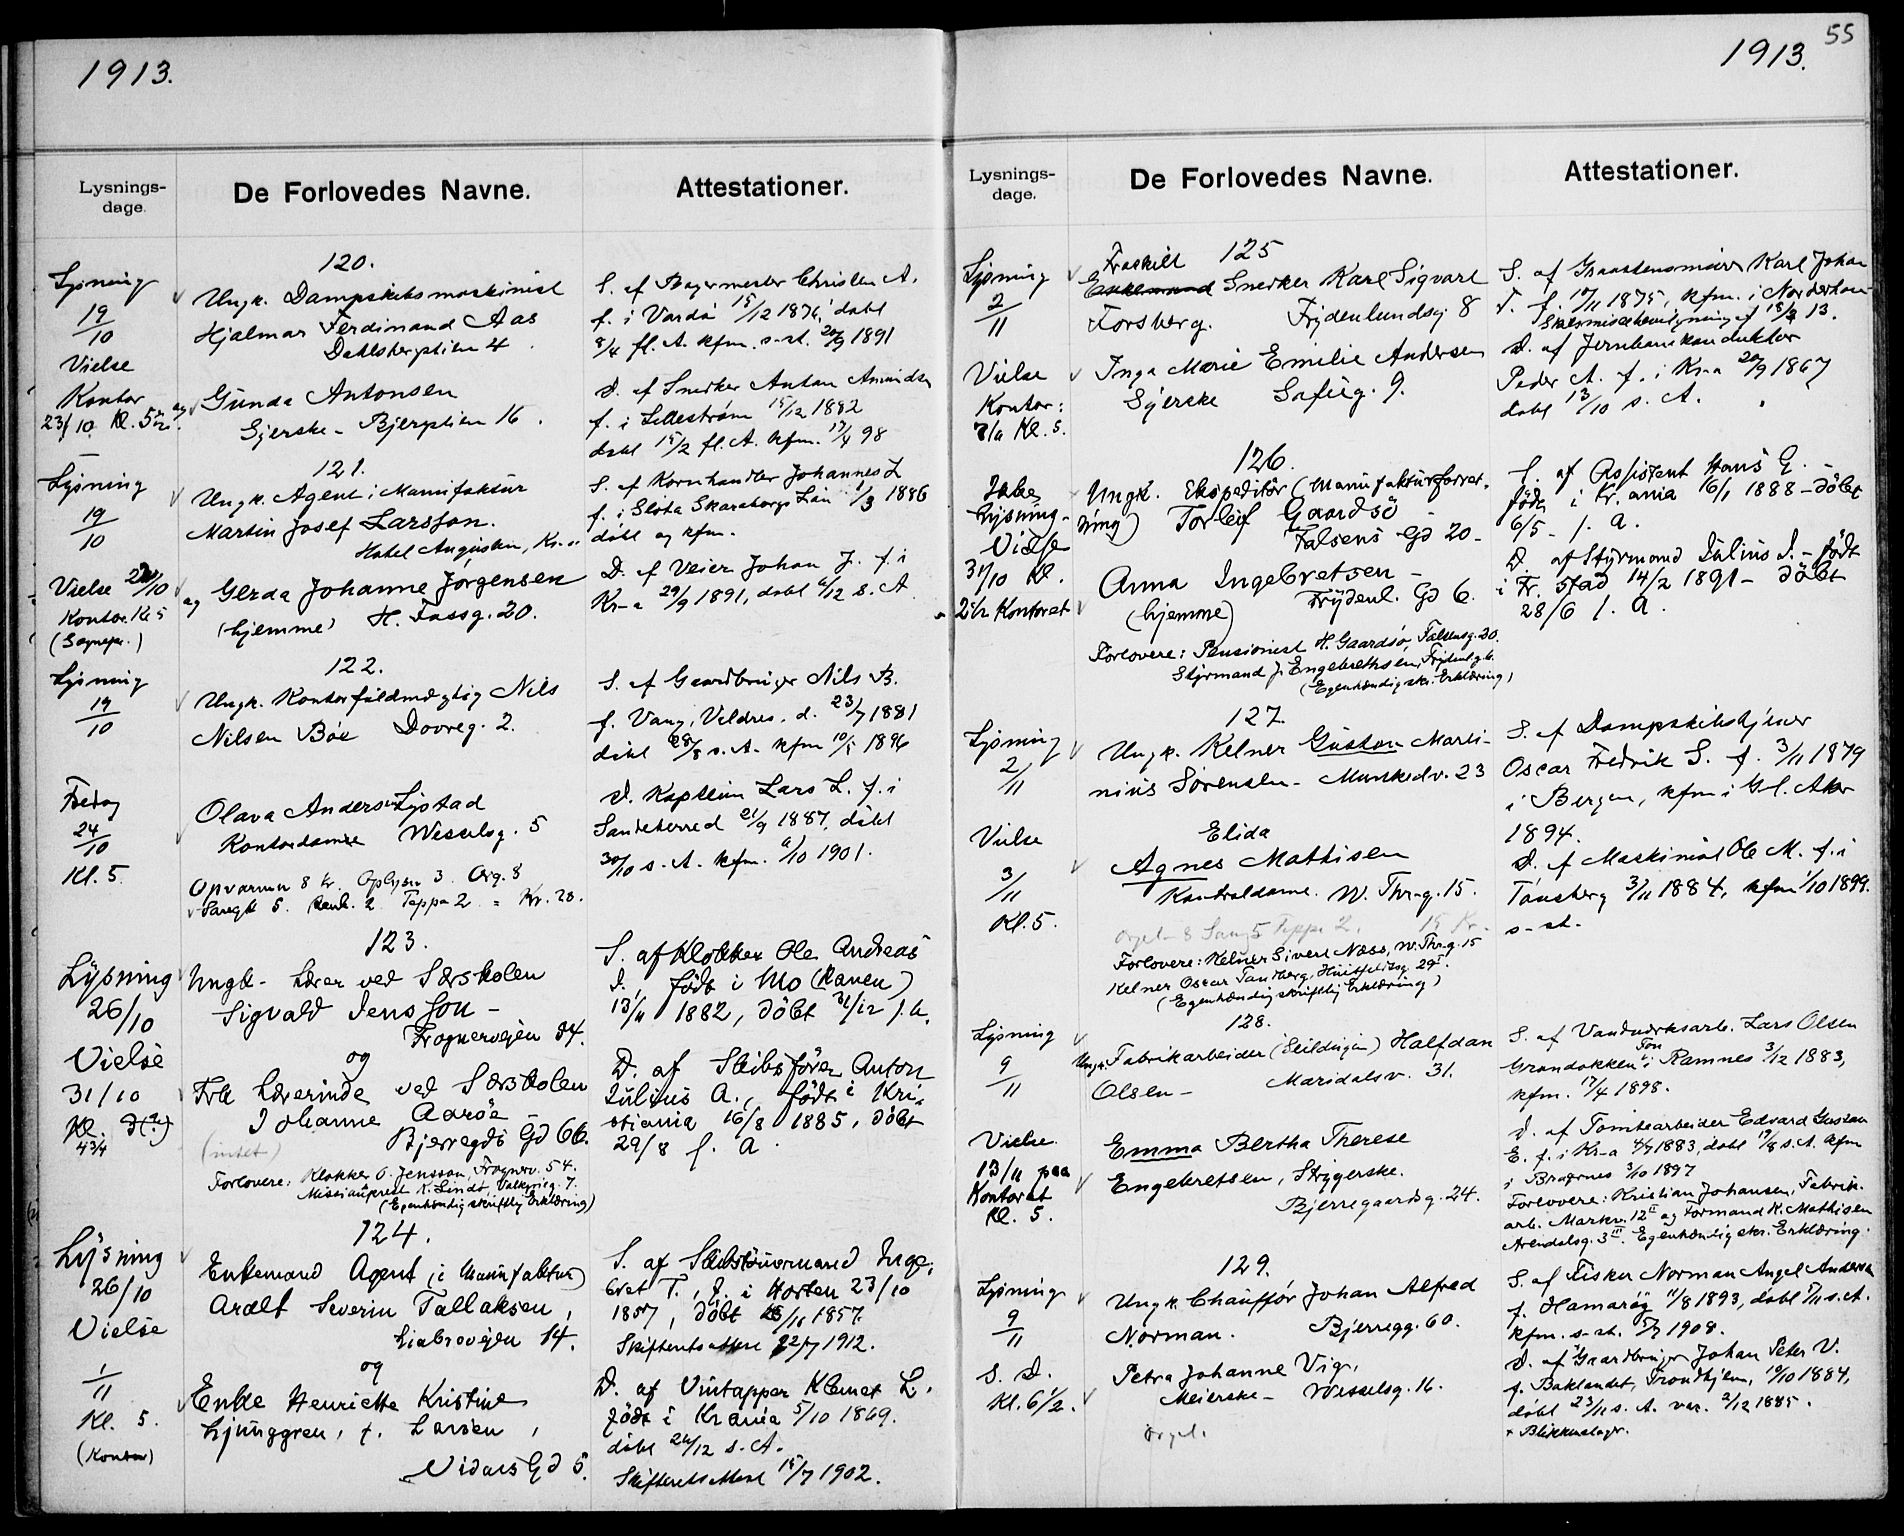 1913.
Lysnings-
dage.
De Forlovedes Navne.
Attestationer.
120.
Lysning
19/10
Vielse
Kontor
23/10 Kl. 5½
Ungk. Dampskibsmaskinist
Hjalmar Ferdinand Aas
Dahlsbergstien 4
og Gunda Antonsen
Syerske - Bjergstien 16.
S. af Bagermester Christen A.
f. i Vardö 15/12 1876, døbt
8/4 fl. A. kfm. s. st. 20/9 1891
D. af Snedker Anton Amundsen
f. i Lillestrøm 15/12 1882
døbt 15/2 fl. A. kfm. 17/4 98
121.
Lysning
19/10
Vielse 22/10
Kontor. Kl. 5
(Sognepr.)
Ungk. Agent i Manufaktur
Martin Josef Larsson.
Hotel Augustin, Kr.a
og Gerda Johanne Jørgensen
(hjemme) H. Fossg. 20.
S. af Kornhandler Johannes L.
f. i Slöta Skaraborgs Län 1/3 1886
døbt og kfm.
D. af Veier Johan J. f. i
Kr-a 29/9 1891, døbt 6/12 s. A.
122.
Lysning
19/10
Fredag
24/10
Kl. 5.
Ungk. Kontorfuldmægtig Nils
Nilsen Bøe Dovreg. 2.
Olava Andersen Lystad
Kontordame Wesselsg. 5
Opvarmn 8 kr. Oplysn 3. Org. 8
Sangk 5. Renh. 2 Teppe 2 = Kr. 28.
S. af Gaardbruger Nils B.
f. Vang, Valdres. d. 23/7 1881
døbt 28/8 s. A. kfm 10/5 1896
D. Kaptein Lars L. f. i
Sandeherred 21/9 1887, døbt
30/10 s. A. kfm. 6/10 1901.
123.
Lysning
26/10
Vielse
31/10
Kl.
4 3/4
Ungk. Lærer ved Særskolen
Sigvald Jensson -
Frognerveien 54.
og
Frk Lærerinde ved Særskolen
Johanne Aarøe -
Bjerregds Gd 66.
(intet)
Forlovere: Klokker O. Jensson, Frognerv. 54.
Misionsprest K. Lindø, Valkyrieg. 7.
(Egenhændig skriftlig Erklæring)
S. af Klokker Ole Andreas
J., født i Mo (Ranen)
13/11 1882, döbt 31/12 s. A.
D. af Skibsfører Anton
Julius A., født i Kri-
stiania 16/8 1885, döbt
29/8 f. A.
124.
Lysning
26/10
Vielse
1/11
Kl. 5.
(Kontor)
Enkemand Agent (i Manufaktur)
Aralt Severin Tallaksen,
Liabroveien 14.
og
Enke Henriette Kristine
Ljunggren, f. Larsen,
Vidars Gd 5.
S. af Skibstømmermand Inge-
bret T., f. i Horten 23/10
1857, döbt 15/11 1857.
Skifteretsattest 22/7 1912.
D. af Vintapper Klemet L.
født i Kr.ania 5/10 1869.
døbt 26/12 s. A.
Skifteretsattest 15/7 1902.
55
1913.
Lysnings-
dage.
De Forlovedes Navne.
Attestationer.
125
Lysning
2/11
Vielse
Kontor:
7/11 Kl. 5.
Fraskilt
Enkemand Snedker Karl Sigvart
Forsberg. Frydenlundsg 8
Inga Marie Emilie Andersen
Syerske Sofieg. 9.
S. af Graastensmurer Karl Johan
F. f. 17/11 1875, kfm. i Norderhov
Skilsmissebevilgning af 18/3 13.
D. af Jernbanekonduktør
Peder A. f. i Kr-a 20/9 1867
døbt 13/10 s. A.
126.
Lysning -
Vielse
31/10 Kl.
2½ Kontoret
Ungk. Ekspeditør (Manufakturforret-
ning) Torleif Gaardsö -
Falsens Gd 20 -
Anna Ingebretsen -
(hjemme) Frydenl. Gd 6.
Forlovere: Pensionist H. Gaardsø, Falsensg. 20.
Styrmand J. Engebrethsen, Frydenl. g. 6.
(Egenhændig skr. Erklæring)
S. af Assistent Hans G. -
født i Kr.ania 16/1 1888 - døbt
6/5 - f. A.
D. af Styrmand Julius I. - født
i Fr. stad 14/2 1891 - döbt
28/6 f. A.
127.
Lysning
2/11
Vielse
3/11
Kl. 5.
Ungk. Kelner Gustav Marti-
nius Sørensen - Munkedv. 23
Elida
Agnes Mathisen
Kontroldame. W. Thr-g. 15.
Orgel - 8 Sang 5 Teppe 2. 15 Kr.
Forlovere: Kelner Sivert Næss, W. Thr-g. 15
Kelner Oscar Tandberg, Huitfeldtsg. 29 I.
(Egenhændig skriftlig Erklæring)
S. af Dampskibskjører
Oscar Fredrik S. f. 3/11 1879
i Bergen, kfm i Gl. Aker
1894.
D. af Maskinist Ole M. f. i
Tønsberg 3/11 1884, kfm 1/10 1899.
s. st.
128.
Lysning
9/11
Vielse
13/11 paa
Kontoret
Kl. 5.
Ungk. Fabrikarbeider (Seildugen) Halfdan
Olsen - Maridalsv. 31.
Emma Bertha Therese
Engebretsen, Strygerske.
Bjerregaardsg. 24.
S. af Vandverksarb. Lars Olsen
i Ramnes 3/12 1883,
kfm. 17/4 1898.
D. af Tomtearbeider Edvard Gustav
E. f. i Kr-a 4/7 1883, døbt 19/8 s. A. kfm
i Bragernes 3/10 1897
Forlovere: Kristian Johansen, Fabrik-
arb. Markv. 12 II og Formand K. Mathisen
Arendalsg. 3 III. Egenhændig skr. Erklæring.
129.
Lysning
9/11
S. D.
Kl. 6½.
Ungk. Chauffør Johan Alfred
Norman. Bjerregg. 60.
Petra Johanne Vig,
Meierske - Wesselsg. 16.
Orgel.
S. af Fisker Norman Angel Andersen
f. Hamarøy 11/8 1893, døbt 5/11 s. A.
kfm. s. st. 5/7 1908.
D. af Gaardbruger Johan Peter V.
f. Baklandet, Trondhjem, 19/10 1884,
døbt 23/11 s. A. vac. 2/12 1885.
+ Blikkenslager.